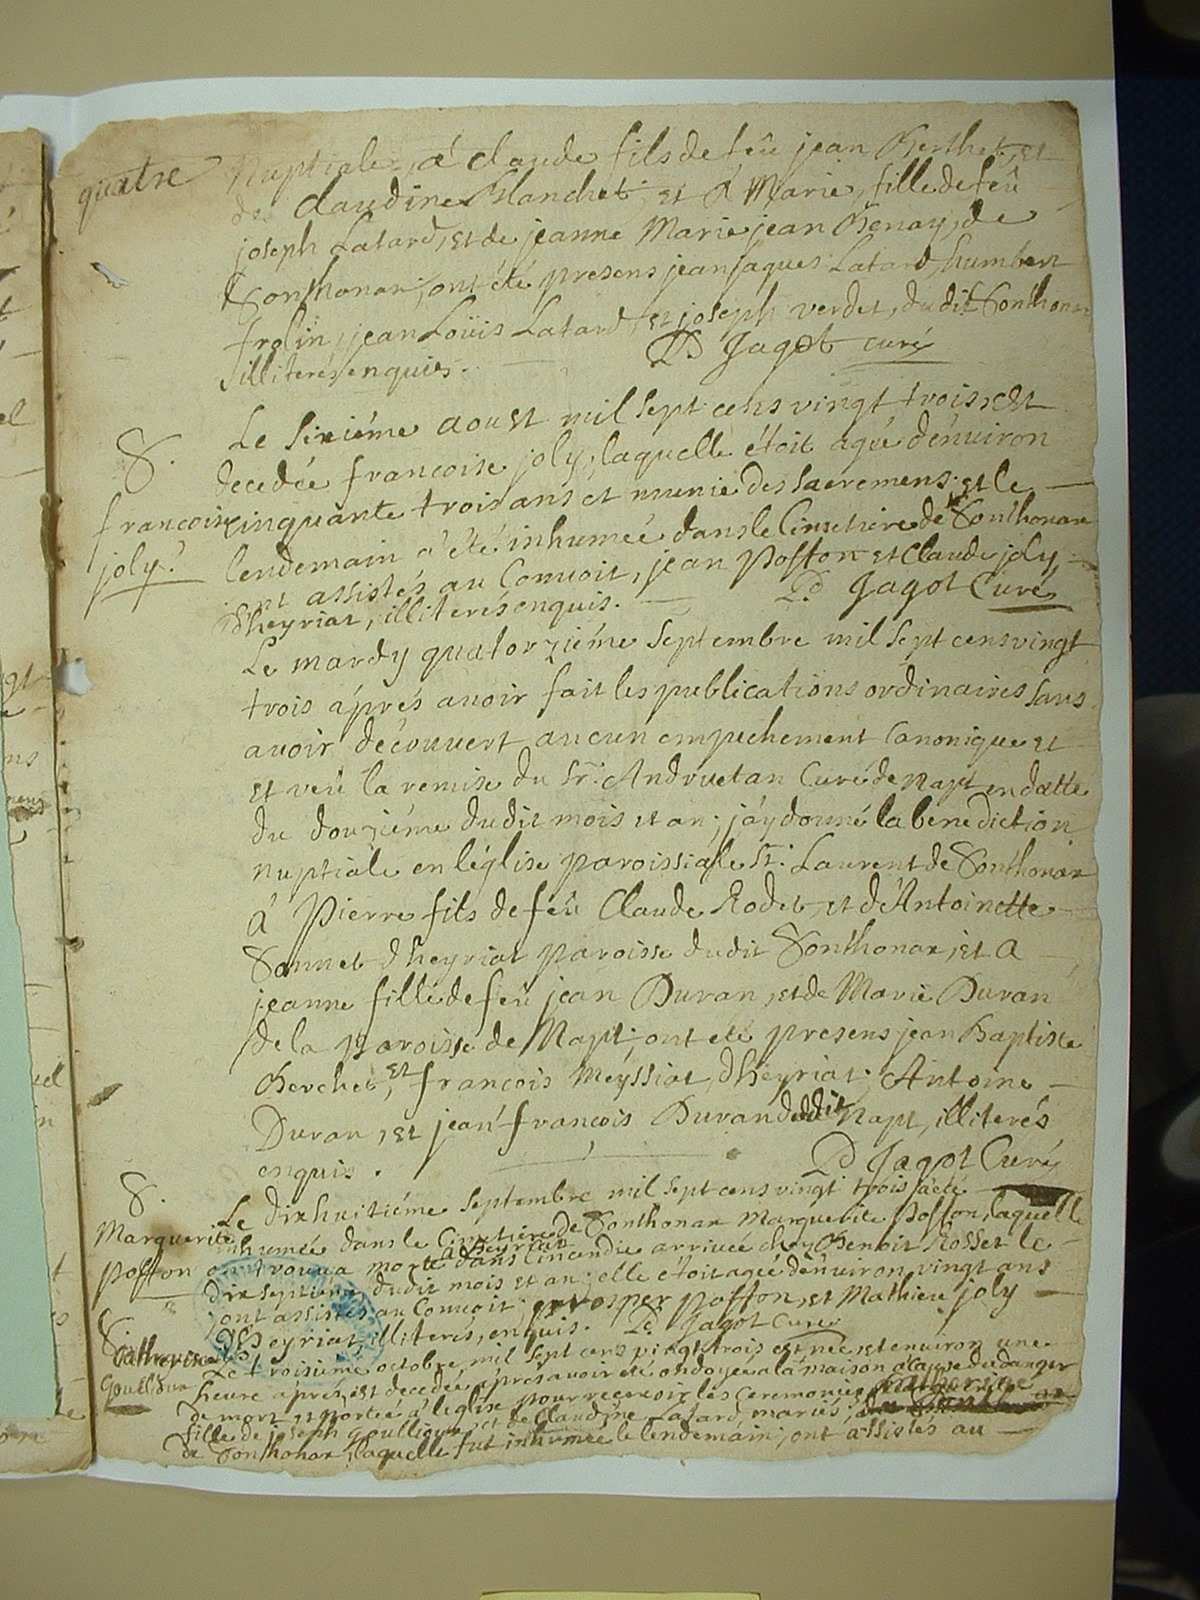 quatre
nuptiale, á claude fils de feû jean Berthet, et
de claudine Blanchet, et á Marie, fille de feû
joseph Latard, et de jeanne Marie jean Benay, de
Sonthonar, ont été presens jean jaques Latard, humbert
frolin, jean Loüis Latard, et joseph verdet, du dit Sonthonar
illiterés enquis. P.d Jagot curé
Le sixiéme aoust mil sept cens vingt trois, est
S.
decedée francoise joly, laquelle étoit agée dénuiron
francoise
cinquante trois ans et munie des sacremens et le
joly.
lendemain a été inhumée dans le Cimetiére de Sonthonar
ont assistés au Conuoit, jean Poffon et Claude joly,
dheyriat, illiterés enquis. P.d Jagot Curé
Le mardy quatorziéme septembre mil sept cens vingt
trois áprés auoir fait les publications ordinaires sans
auoir découuert aucun empechement Canonique et
et veû la remise du Sr. Andruetan Curé de napt en datte
du douziéme dudit mois et an; j'áy donné la bénédiction
nuptiale en léglise paroissiale St. Laurent de Sonthonar
á Pierre fils de feû Claude Rodet, et d'Antoinette
Sonnet dheyriat paroisse dudit Sonthonar, et a
jeanne fille de feû jean Duran, et de Marie Duran
de la Paroisse de Napt; ont eté presens jean Baptiste
Berchet, et francois Meyssiat, dheyriat; Antoine
Duran, et jean francois Duran dudit Napt, illiterés
enquis. P.d Jagot Curé
S.
Le dixhuitiéme septembre mil sept cens vingt trois a été
Marguerite
inhumée dans le Cimetiére de Sonthonar Marguerite Poffon, laquelle
a heyriat
Poffon
on trouua morte dans lincendie arriuée chez Benoit Rosset le
dixseptiéme dudit mois et an; elle étoit agée dénuiron vingt ans
ont assistés au Conuoit; prosper Poffon, et Mathieu joly
dheyriat, illiterés, enquis. P.d Jagot Curé
S.
Catherine
Le troisiéme octobre mil sept cens vingt trois est née, et enuiron une
Goullioux
heure áprés, est decedée áprés auoir été ondoyée a la maison a cause du danger
de mort et portée á léglise pour receuoir les Ceremonies, Catherine
fille de joseph goullioux, et de Claudine Latard, mariés;
de Sonthonar, laquelle fut inhumée le lendemain; ont assistés au